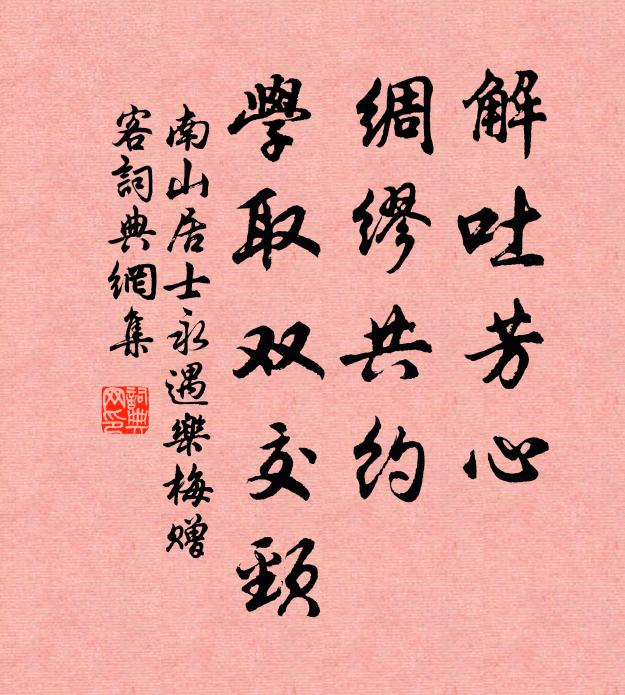 解吐芳心
綢繆共約
學取双交頸
南山居士永遇樂梅贈
客詞典網集
詞典网印